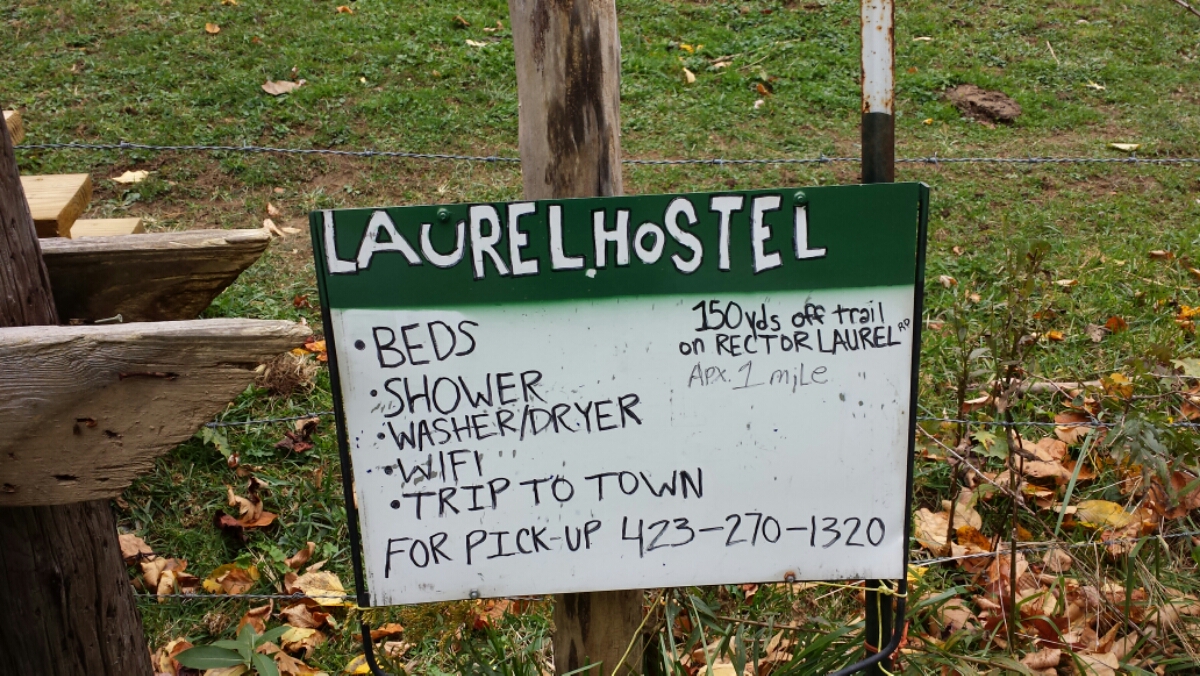 LAURELHOSTEL
150yds off trail
on RECTOR LAUREL RD
Apx. 1 mile
• BEDS
• SHOWER
• WASHER/DRYER
• WIFI
• TRIP TO TOWN
FOR PICK-UP 423-270-1320